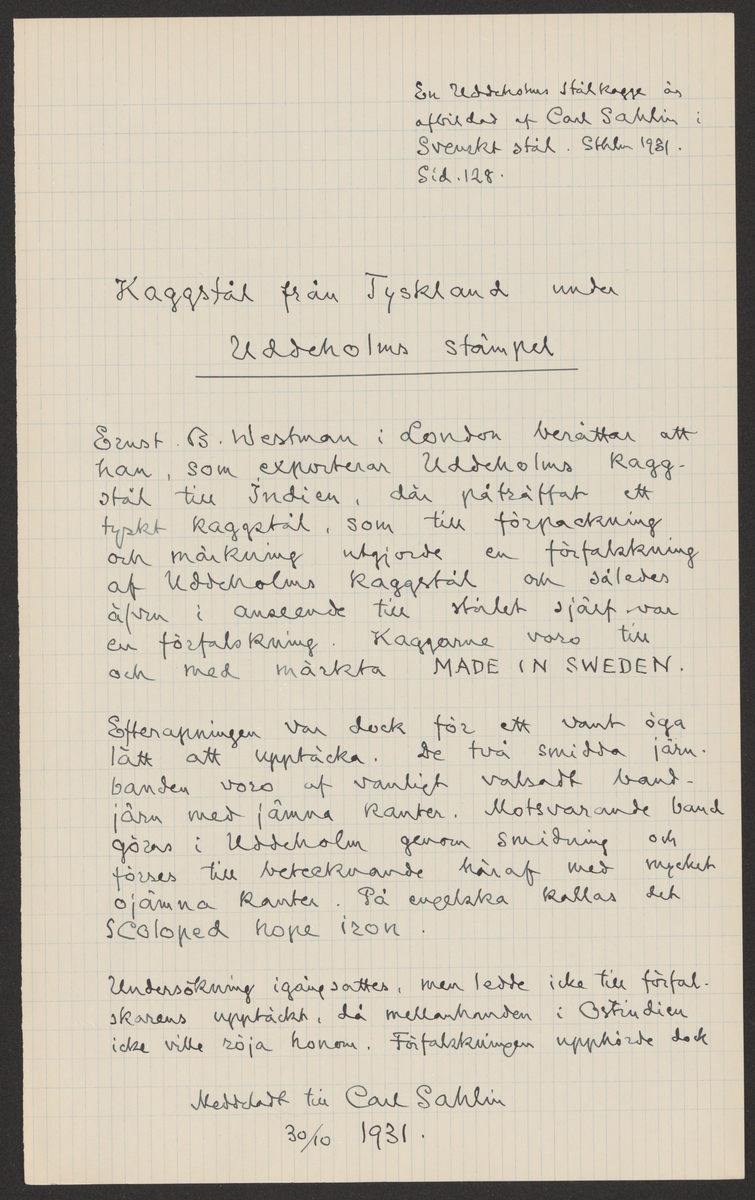 En Uddeholms stålkagge är
afbildad af Carl Sahlin i
Svenskt stål. Sthlm 1931.
Sid. 128.
Kaggstål från Tyskland under
Uddeholms stämpel
Ernst B. Westman i London berättar att
han, som exporterar Uddeholms kagg-
stål till Indien, där påträffat ett
tyskt kaggstål, som till förpackning
och märkning utgjorde en förfalskning
af Uddeholms kaggstål och således
äfven i anseende till stålet själf var
en förfalskning. Kaggarne voro till
och med märkta MADE IN SWEDEN.
Efterapningen var dock för ett vant öga
lätt att upptäcka. De två smidda järn-
banden voro af vanligt valsadt band-
järn med jämna kanter. Motsvarande band
göras i Uddeholm genom smidning och
förses till betecknande häraf med mycket
ojämna kanter. På engelska kallas det
scoloped hope iron.
Undersökning igångsattes, men ledde icke till förfal-
skarens upptäckt, då mellanhanden i Ostindien
icke ville röja honom. Förfalskningen upphörde dock
Meddeladt till Carl Sahlin
30/10 1931.